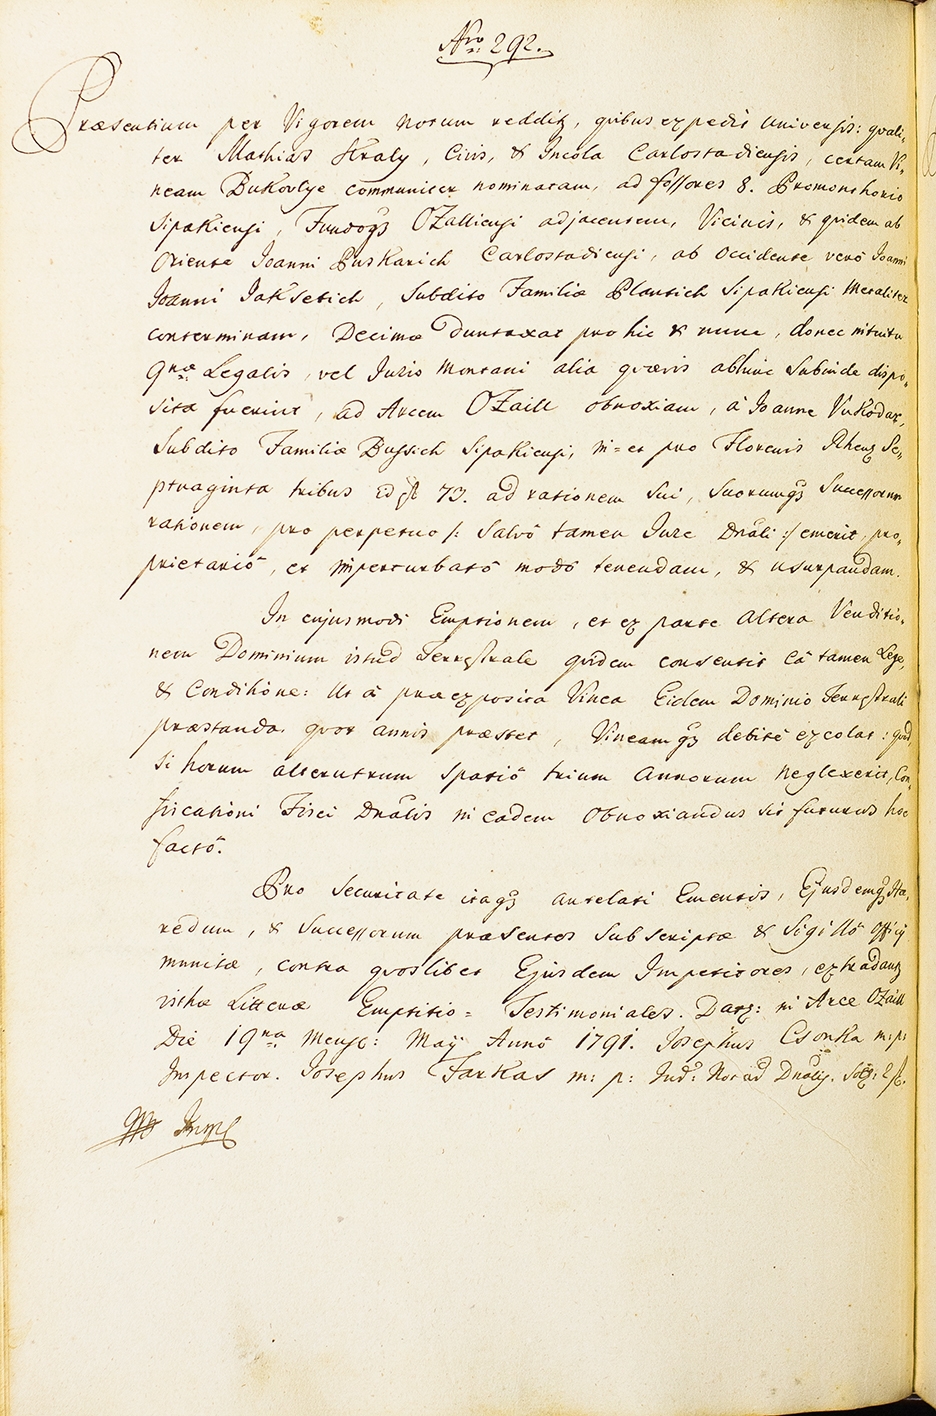 Nro: 292.
Præsentium per Vigorem notum redditz, quibus expedit universis: quali-
ter Mathias Kraly, Civis, & Incola Carlostadiensis, certam Vi-
neam Bukovlye communiter nominatam, ad fossores 8. Promonthorio
Sipakiensi, Fundoqz Ozalliensi adjacentem, Vicinis, & quidem ab
Oriente Joanni Puskarich Carlostadiensi, ab Occidente verò Joanni
Joanni Jaksetich, Subdito Familiæ Plantich Sipakiensi Metaliter
conterminam, Decimæ duntaxat pro hic & nunc, donec
qnæ Legalis, vel Jurio Montani alia quævis abhinc subinde dispo-
sita fuerint, ad Arcem Ozaill obnoxiam, à Joanne Vukodar,
Subdito Familiæ Bussich Sipakiensi, in = et pro Florenis Rhenz Se-
ptuaginta tribus id est 73. ad rationem sui, suorumqz Successorum
rationem, pro perpetuo /: Salvô tamen Jure Dnali :/ emerit, pro-
prietariô, et imperturbatô modô tenendam, & usurpandam.
In cujusmodi Emptionem, et ex parte altera Venditio-
nem Dominium istud Terrestrale quidem consentit eâ tamen Lege,
& Conditione: Ut à præexposita Vinea Eidem Dominio Terrestrali
præstanda quot annis præstet, Vineamqz debitè excolat: quod
si horum alterutrum spatiô trium Annorum neglexerit, Con-
fiscationi Fisci Dnalis in eadem obnoxiandus sit futurus hoc
factô.
Pro Securitate itaqz antelati Ementis, Ejusdemqz Hæ-
redum, & Successorum præsentes subscriptæ & Sigillô Officij
munitæ, contra quoslibet Ejusdem Impetitores, extradantz
isthæ Litteræ Emptitio = Testimoniales. Datz: in Arce Ozaill
Die 19na Mensis: Maij Annô 1791. Josephus Csonka m: p:
Inspector. Josephus Farkas m: p: Jud: Dnalij.